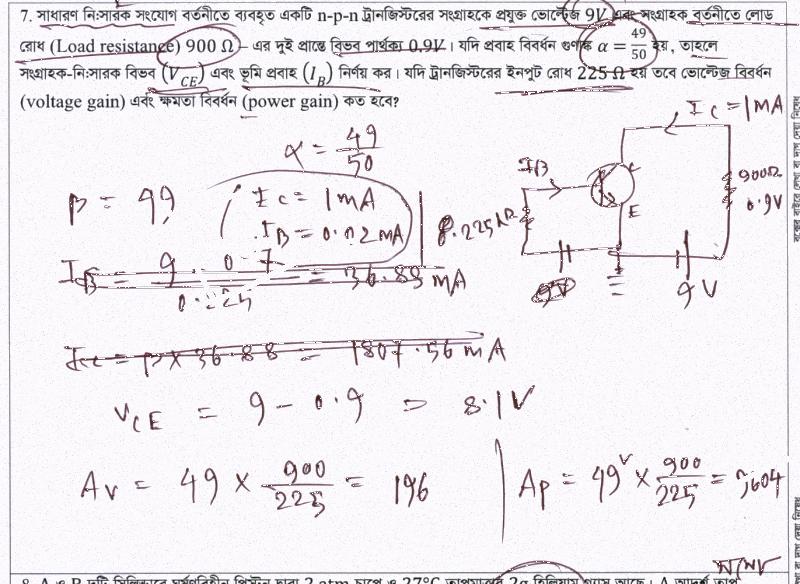 7. সাধারণ নিঃসারক সংযোগ বর্তনীতে ব্যবহৃত একটি n-p-n ট্রানজিস্টরের সংগ্রাহকে প্রযুক্ত ভোল্টেজ 9V এবং সংগ্রাহক বর্তনীতে লোড
রোধ (Load resistance) 900 Ω – এর দুই প্রান্তে বিভব পার্থক্য 0.9V। যদি প্রবাহ বিবর্ধন গুণাঙ্ক α = 49/50 হয়, তাহলে
সংগ্রাহক-নিঃসারক বিভব (V_CE) এবং ভূমি প্রবাহ (I_B) নির্ণয় কর। যদি ট্রানজিস্টরের ইনপুট রোধ 225 Ω হয় তবে ভোল্টেজ বিবর্ধন
(voltage gain) এবং ক্ষমতা বিবর্ধন (power gain) কত হবে?
I_C = 1MA
α = 49/50
β = 49,
I_C = 1mA
I_B = 0.02mA
I_B
C
E
900Ω
0.9V
9V
9V
I_B = 9 - 0.7 / 0.225 = 36.88 mA
I_C = β × 36.88 = 1807.56 mA
V_CE = 9 – 0.9 = 8.1V
A_V = 49 × 900/225 = 196
A_P = 49² × 900/225 = 9604